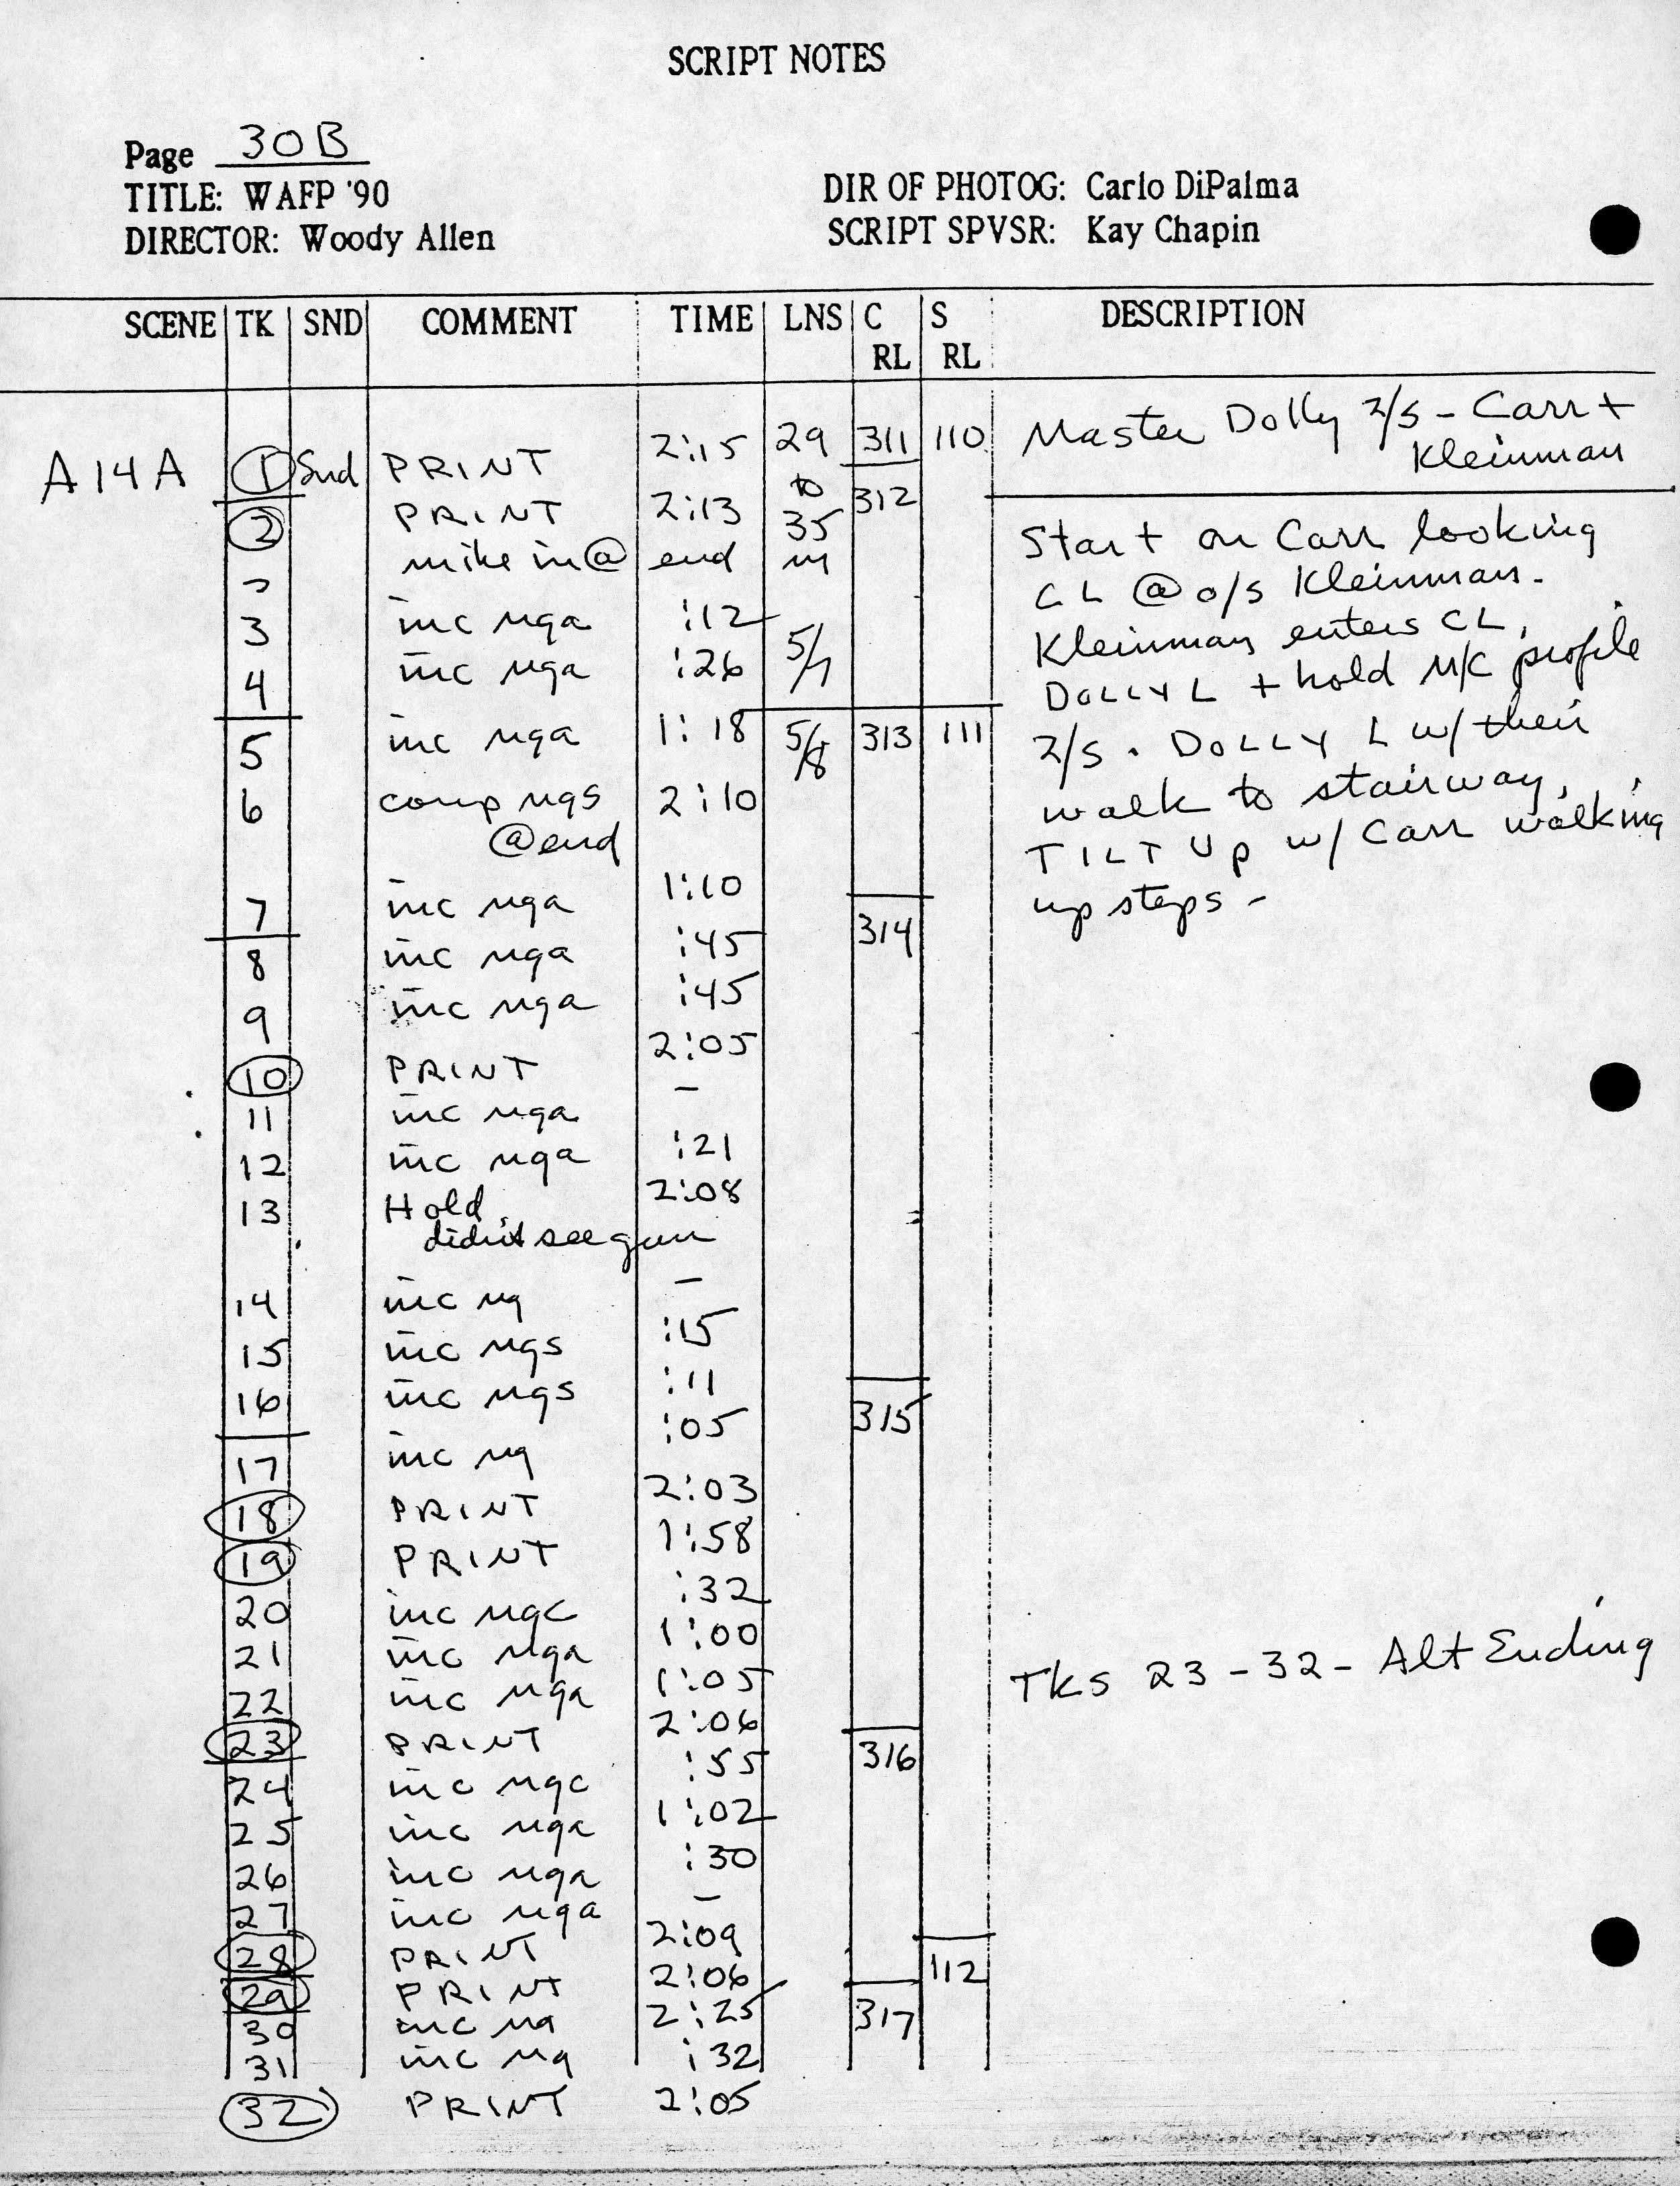 SCRIPT NOTES
Page 30B
TITLE: WAFP '90
DIRECTOR: Woody Allen
DIR OF PHOTOG: Carlo DiPalma
SCRIPT SPVSR: Kay Chapin
SCENE TK SND COMMENT TIME LNS C RL S RL DESCRIPTION
A14A 1 Snd PRINT 2:15 29 311 110
2 PRINT 2:13 to 35 312
mike in @ end m
3 inc nga :12
4 inc nga :26 5/7
5 inc nga 1:18 5/8 313 111
6 comp ngs 2:10
@end
7 inc nga 1:10
8 inc nga :45 314
9 inc nga :45
10 PRINT 2:05
11 inc nga –
12 inc nga :21
13 Hold 2:08
didn't see gun
14 inc ng –
15 inc ngs :15
16 inc ngs :11
17 inc ng :05 315
18 PRINT 2:03
19 PRINT 1:58
20 inc ngc :32
21 inc nga 1:00
22 inc nga 1:05
23 PRINT 2:06
24 inc ngc :55 316
25 inc nga 1:02
26 inc nga :30
27 inc nga –
28 PRINT 2:09
29 PRINT 2:06 112
30 inc ng 2:25 317
31 inc ng :32
32 PRINT 2:05
Master Dolly 2/s - Carr +
Kleinman
Start on Carr looking
CL @ o/s Kleinman.
Kleinman enters CL,
DOLLY L + hold M/C profile
2/s. DOLLY L w/ their
walk to stairway,
TILT Up w/ Carr walking
up steps -
Tks 23 - 32 - Alt Ending